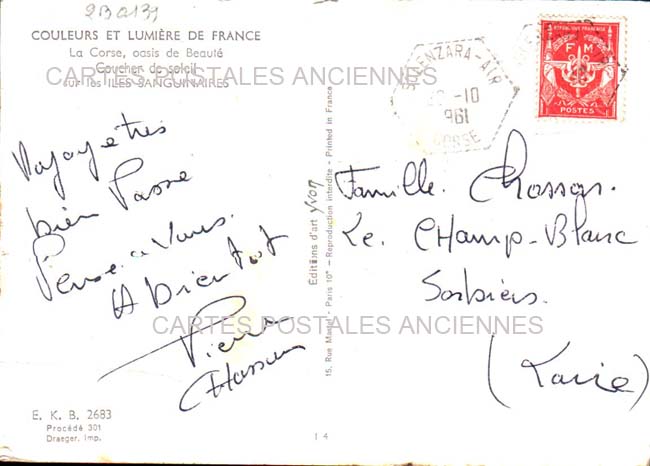 2B0139
COULEURS ET LUMIÈRE DE FRANCE
La Corse, oasis de Beauté
Coucher de soleil
sur les ILES SANGUINAIRES
CARTES POSTALES ANCIENNES
Voyage très
bien Passé
Pense à vous.
A bientot
Pierre
Chassan
CARTES POSTALES ANCIENNES
E. K. B. 2683
Procédé 301
Draeger, Imp.
Editions d'art YVON
15, Rue Martel - Paris 10e - Reproduction interdite - Printed in France
14
SOLENZARA-AIR
-10
1961
CORSE
REPUBLIQUE FRANÇAISE
F M
POSTES
Famille.
Le. CHAMP-Blanc
Sorbiers.
(Loire)